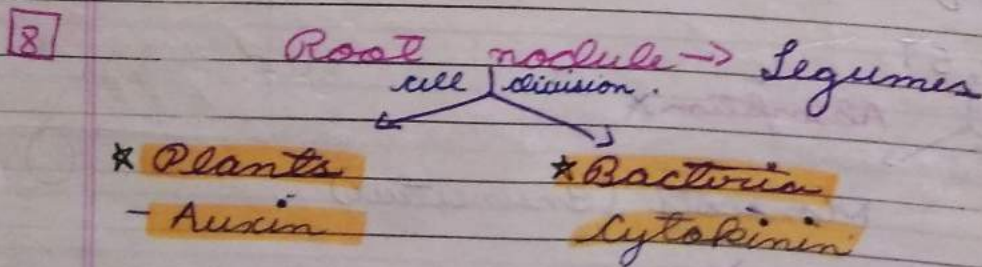 8
Root nodule → Legumes
cell division.
* Plants * Bacteria
- Auxin Cytokinin